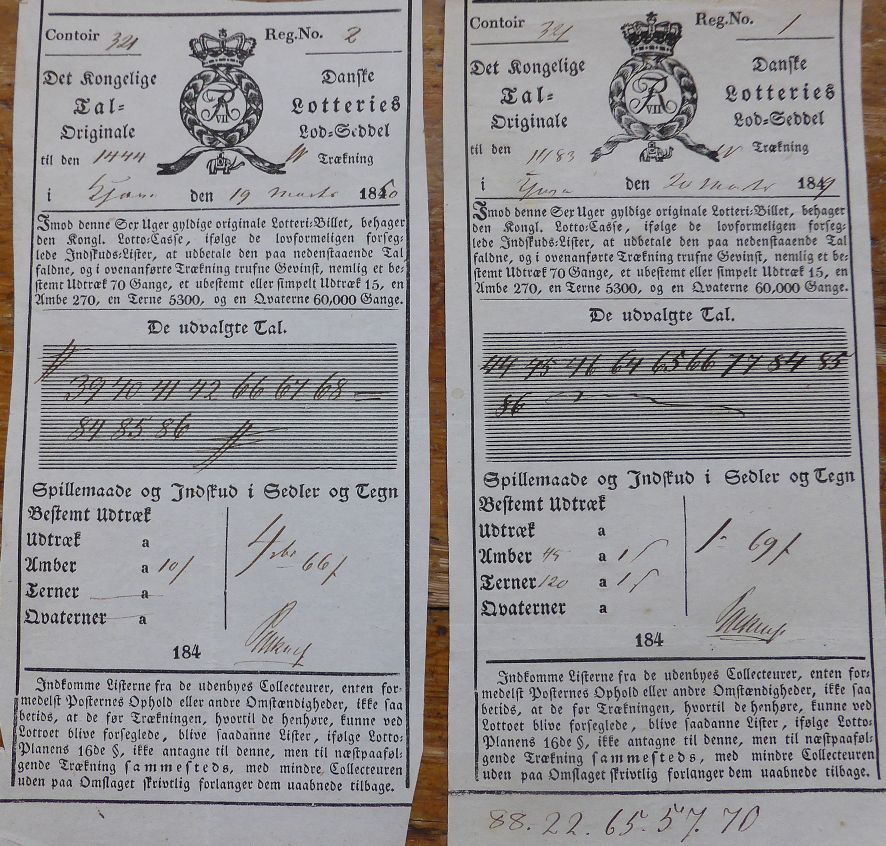 Contoir 321 Reg.No. 2
Det Kongelige Danske
Tal- Lotteries
Originale Lod-Seddel
FR VII
til den 1444 Trækning
i den 19 Marts 184
Imod denne Sex Uger gyldige originale Lotteri-Billet, behager
den Kongl. Lotto-Casse, ifølge de lovformeligen forseg-
lede Indskuds-Lister, at udbetale den paa nedenstaaende Tal
faldne, og i ovenanførte Trækning trufne Gevinst, nemlig et be-
stemt Udtræk 70 Gange, et ubestemt eller simpelt Udtræk 15, en
Ambe 270, en Terne 5300, og en Qvaterne 60,000 Gange.
De udvalgte Tal.
39 40 41 42 66 67 68
84 85 86
Spillemaade og Indskud i Sedler og Tegn
Bestemt Udtræk
Udtræk a
Amber a 10
Terner a
Qvaterner a
4 66
184
Indkomme Listerne fra de udenbyes Collecteurer, enten for-
medelst Posternes Ophold eller andre Omstændigheder, ikke saa
betids, at de før Trækningen, hvortil de henhøre, kunne ved
Lottoet blive forseglede, blive saadanne Lister, ifølge Lotto-
Planens 16de §, ikke antagne til denne, men til næstpaaføl-
gende Trækning sammesteds, med mindre Collecteuren
uden paa Omslaget skrivtlig forlanger dem uaabnede tilbage.
Contoir 321 Reg.No. 1
Det Kongelige Danske
Tal- Lotteries
Originale Lod-Seddel
FR VII
til den 1483 Trækning
i den 20 Marts 1849
Imod denne Sex Uger gyldige originale Lotteri-Billet, behager
den Kongl. Lotto-Casse, ifølge de lovformeligen forseg-
lede Indskuds-Lister, at udbetale den paa nedenstaaende Tal
faldne, og i ovenanførte Trækning trufne Gevinst, nemlig et be-
stemt Udtræk 70 Gange, et ubestemt eller simpelt Udtræk 15, en
Ambe 270, en Terne 5300, og en Qvaterne 60,000 Gange.
De udvalgte Tal.
44 45 46 64 65 66 77 84 85
86
Spillemaade og Indskud i Sedler og Tegn
Bestemt Udtræk
Udtræk a
Amber 45 a 1
Terner 120 a 1
Qvaterner a
1 69
184
Indkomme Listerne fra de udenbyes Collecteurer, enten for-
medelst Posternes Ophold eller andre Omstændigheder, ikke saa
betids, at de før Trækningen, hvortil de henhøre, kunne ved
Lottoet blive forseglede, blive saadanne Lister, ifølge Lotto-
Planens 16de §, ikke antagne til denne, men til næstpaaføl-
gende Trækning sammesteds, med mindre Collecteuren
uden paa Omslaget skrivtlig forlanger dem uaabnede tilbage.
88. 22. 65. 57. 70